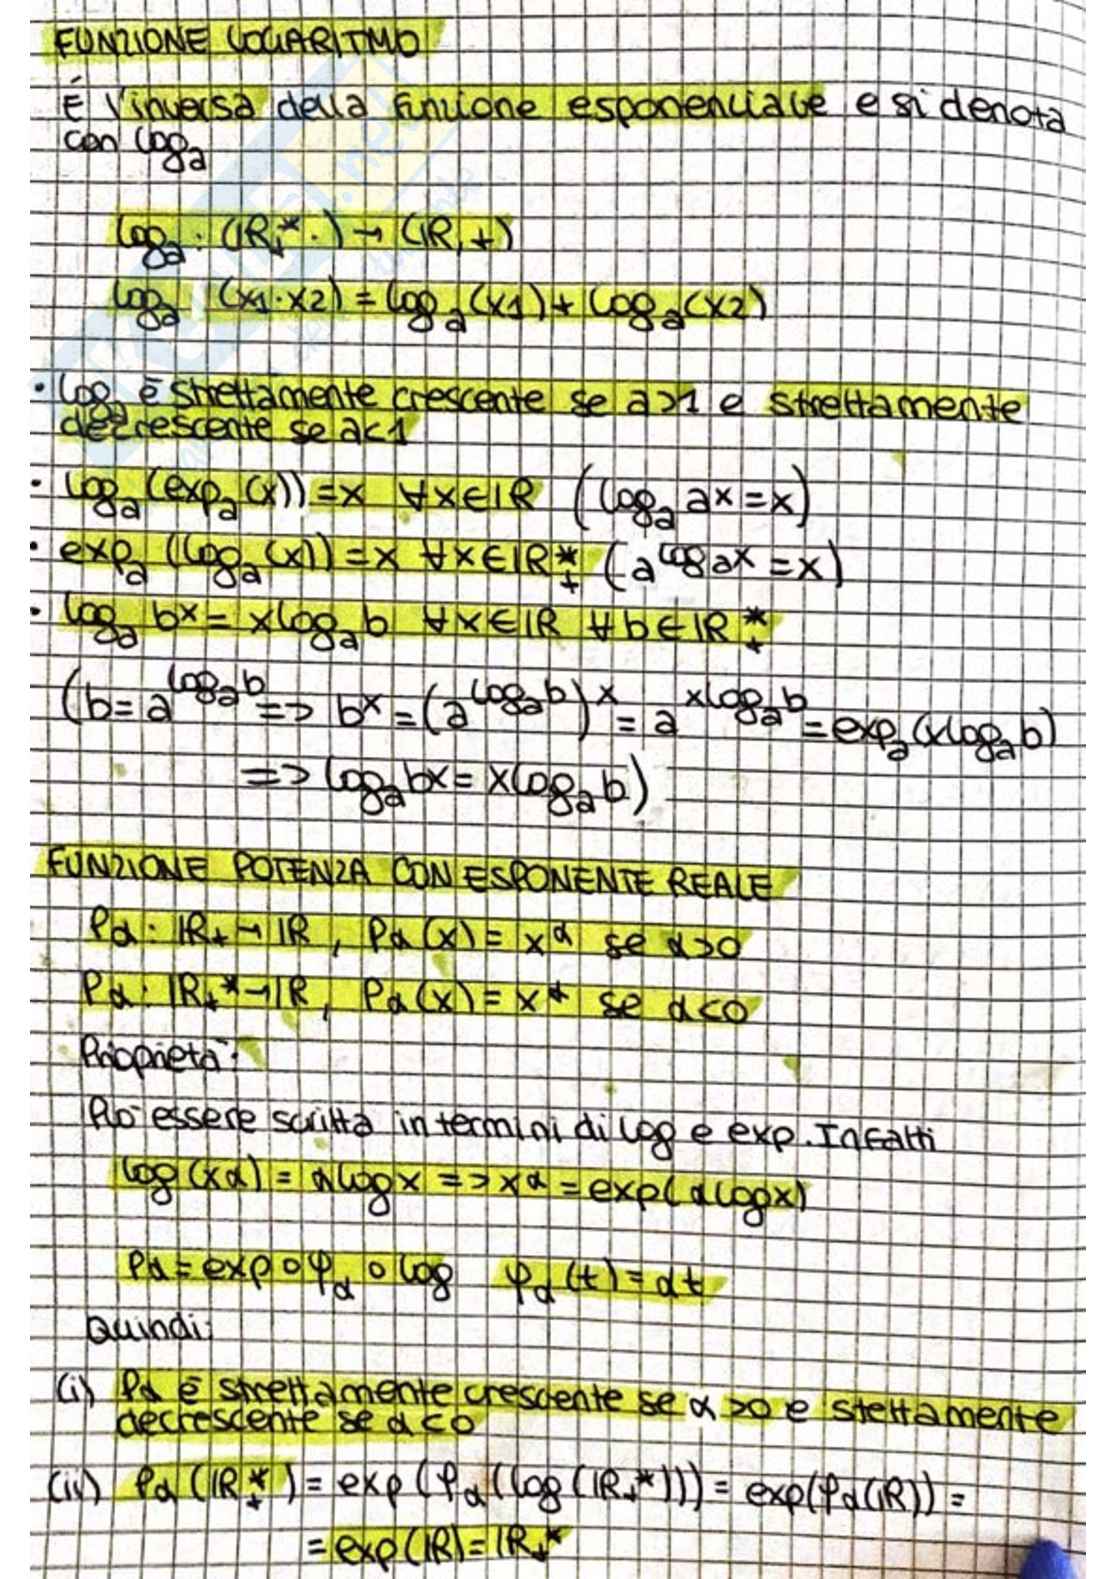 FUNZIONE LOGARITMO
È l'inversa della funzione esponenziale e si denota
con log_a
log_a : (ℝ₊*, ·) → (ℝ, +)
log_a (x1·x2) = log_a(x1) + log_a(x2)
· log_a è strettamente crescente se a>1 e strettamente
decrescente se a<1
· log_a(exp_a(x)) = x ∀x∈ℝ (log_a aˣ = x)
· exp_a (log_a(x)) = x ∀x∈ℝ₊* (a^(log_a x) = x)
· log_a bˣ = x log_a b ∀x∈ℝ ∀b∈ℝ₊*
(b = a^(log_a b) => bˣ = (a^(log_a b))ˣ = a^(x log_a b) = exp_a(x log_a b)
=> log_a bx = x log_a b)
FUNZIONE POTENZA CON ESPONENTE REALE
Pα : ℝ₊ → ℝ , Pα(x) = x^α se α>0
Pα : ℝ₊* → ℝ, Pα(x) = x^α se α<0
Proprietà:
Può essere scritta in termini di log e exp. Infatti
log(xα) = α log x => x^α = exp(α log x)
Pα = exp ∘ φα ∘ log φα(t) = αt
Quindi:
(i) Pα è strettamente crescente se α>0 e stettamente
decrescente se α<0
(ii) Pα(ℝ₊*) = exp(φα(log(ℝ₊*))) = exp(φα(ℝ)) =
= exp(ℝ) = ℝ₊*